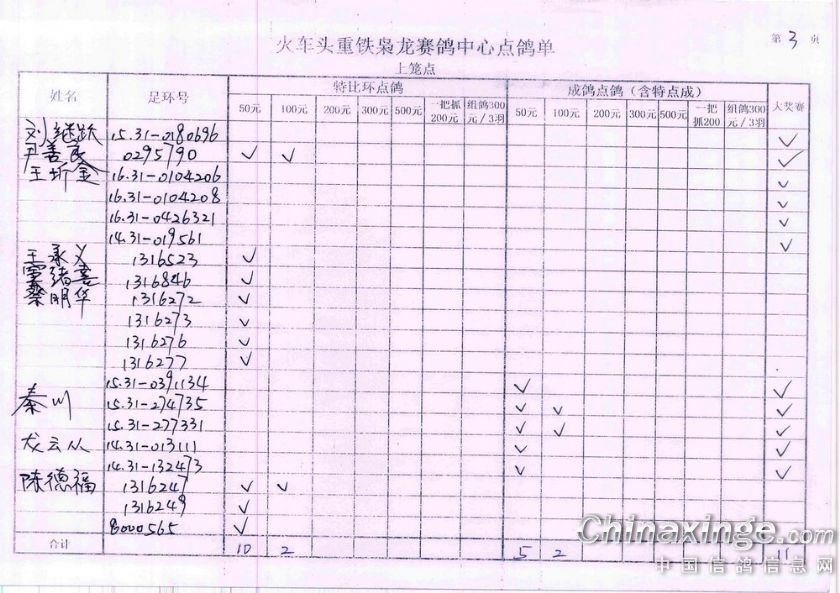 第 3 页
火车头重铁枭龙赛鸽中心点鸽单
上笼点
姓名 足环号 特比环点鸽 成鸽点鸽（含特点成） 大奖赛
50元 100元 200元 300元 500元 一把抓200元 组鸽300元/3羽 50元 100元 200元 300元 500元 一把抓200 组鸽300元/3羽
刘继跃 15.31-0180696 ✓
尹善民 0295790 ✓ ✓ ✓
王圻金 16.31-0104206 ✓
16.31-0104208 ✓
16.31-0426321 ✓
14.31-019561 ✓
王永义 1316523 ✓
绪喜 1316846 ✓
蔡明华 1316272 ✓
1316273 ✓
1316276 ✓
1316277 ✓
15.31-0391134 ✓ ✓
秦川 15.31-274735 ✓ ✓ ✓
15.31-277331 ✓ ✓ ✓
龙云从 14.31-013111 ✓ ✓
14.31-132473 ✓ ✓
陈德福 1316247 ✓ ✓
1316249 ✓
8000565 ✓
合计 10 2 5 2 11
Chinaxinge.com
中国信鸽信息网